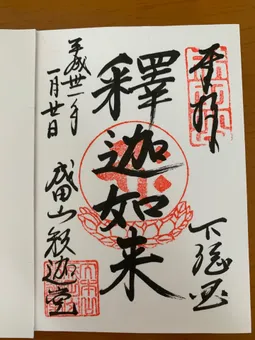 奉拝
下総国
釋迦如来
平成卅一年
一月廿日
釈迦堂